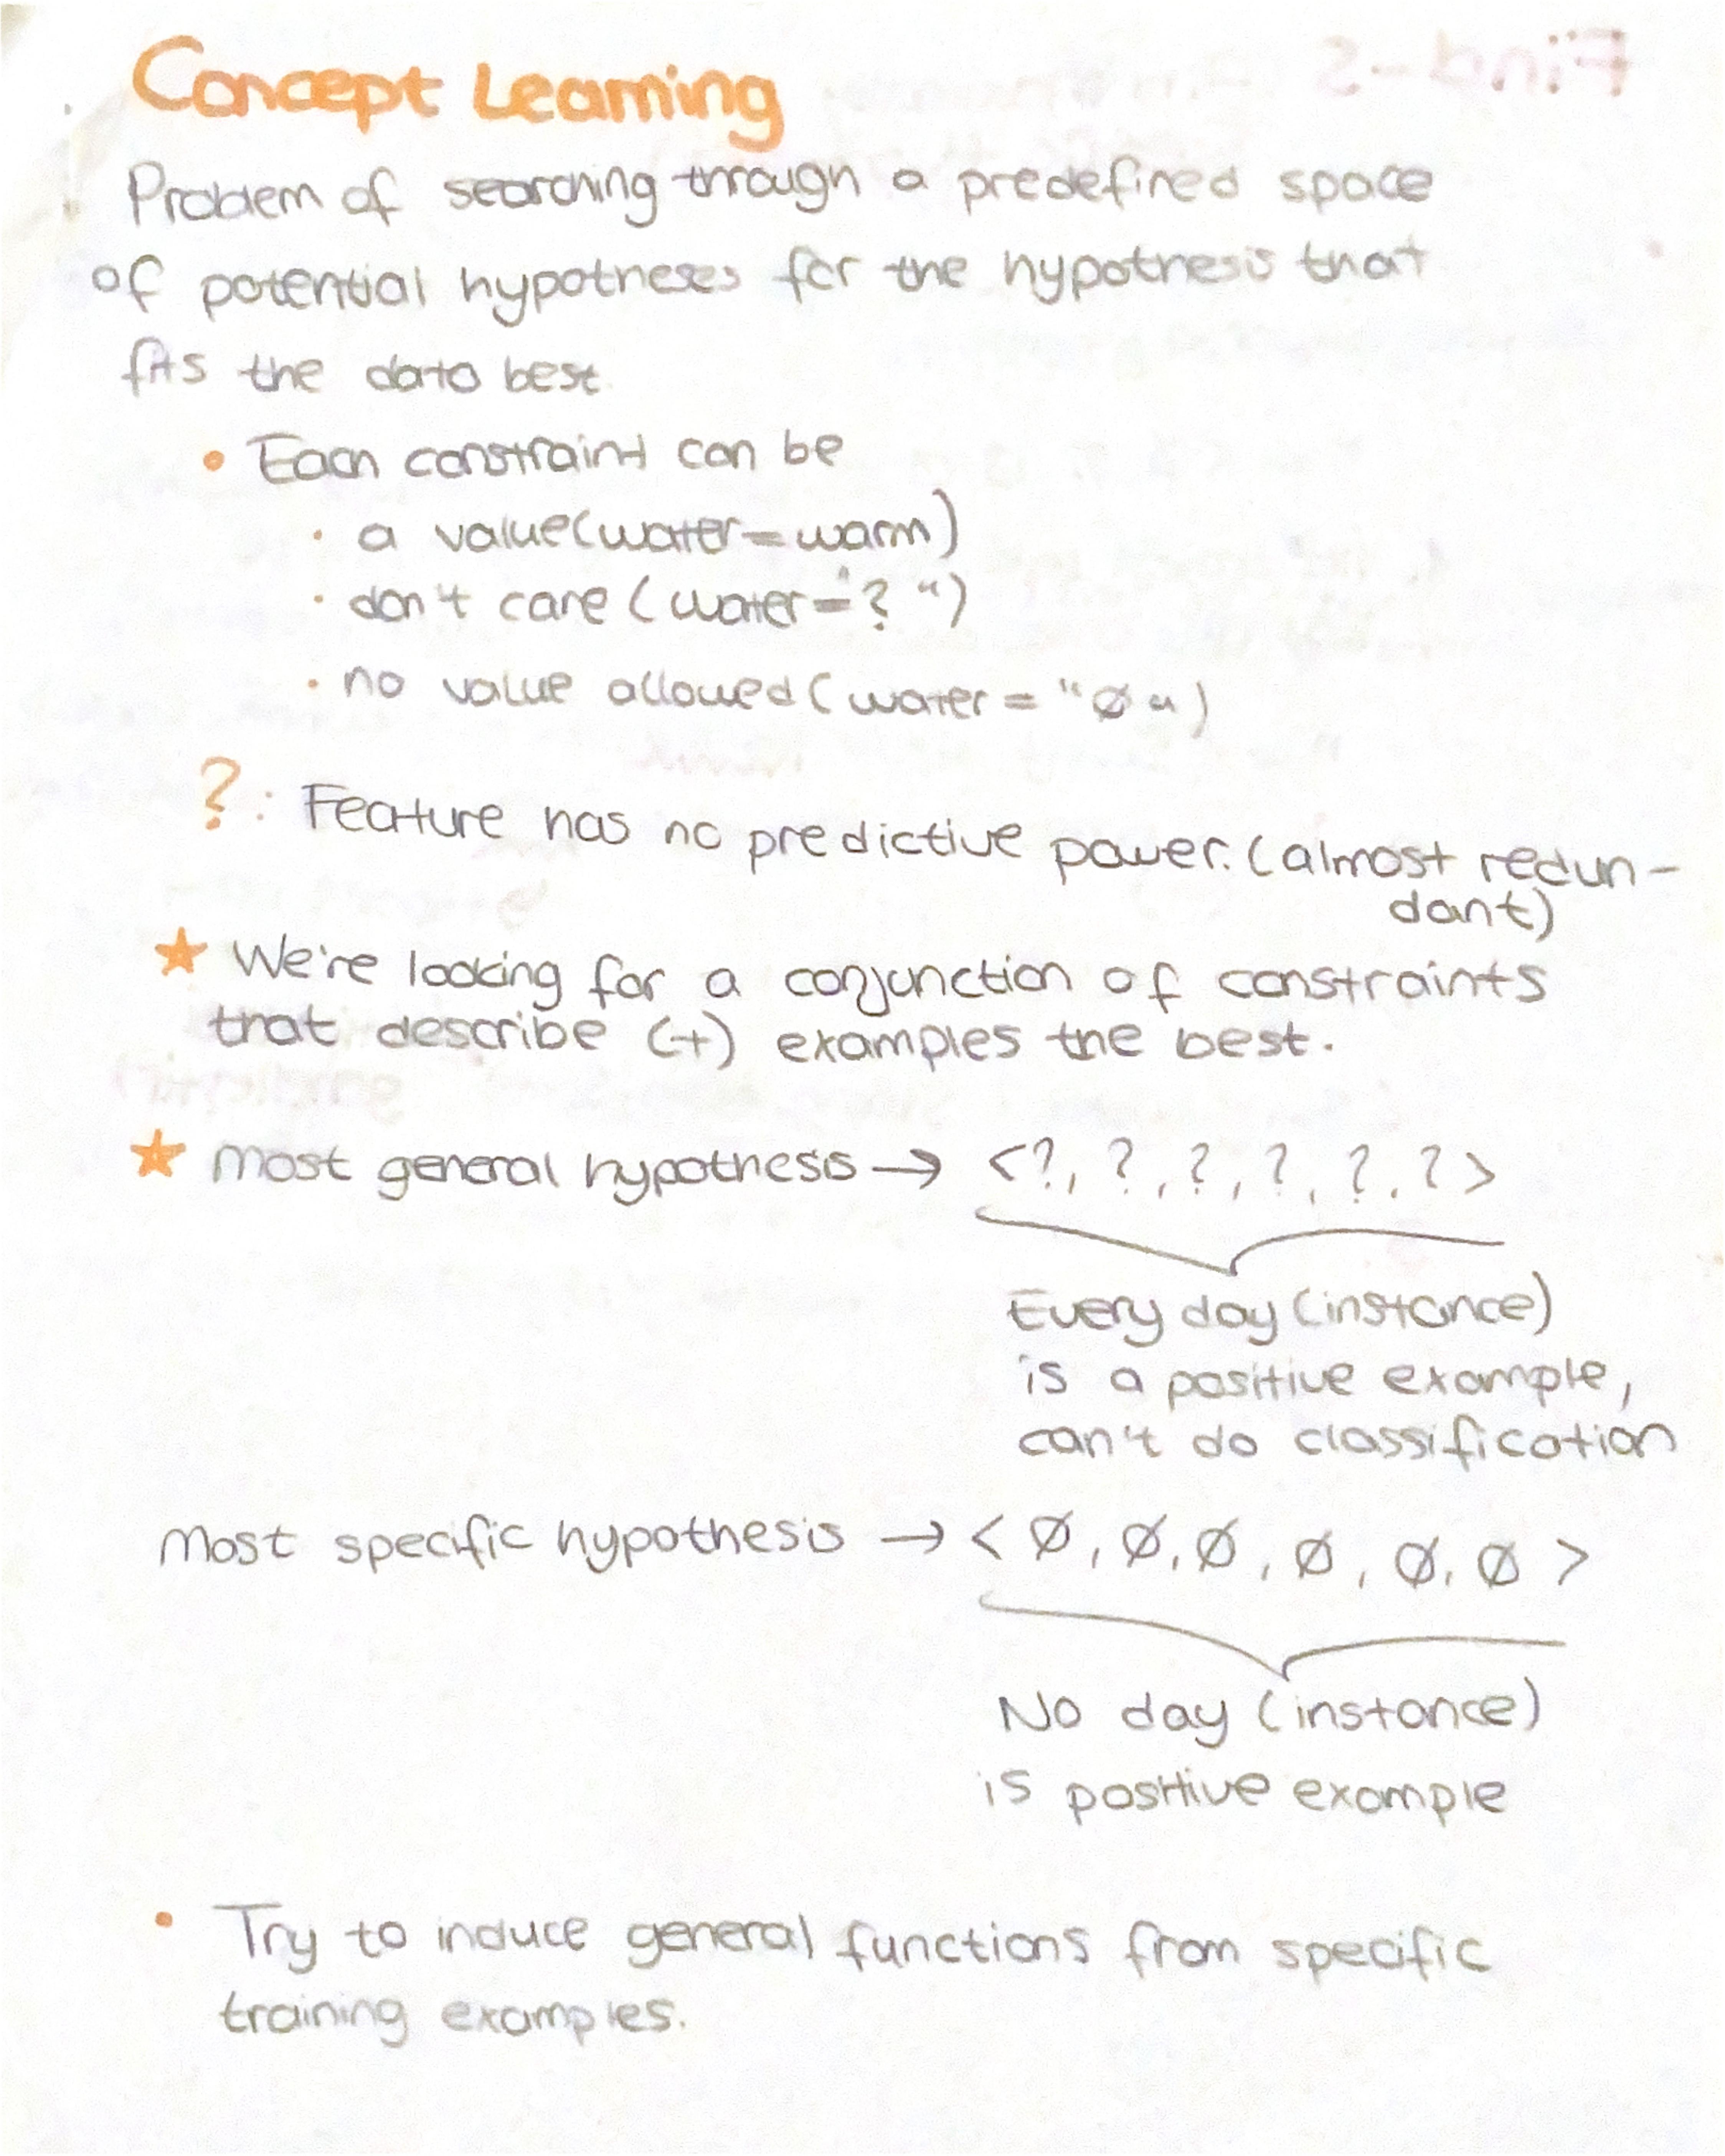 Concept Learning
Problem of searching through a predefined space
of potential hypotheses for the hypothesis that
fits the data best.
• Each constraint can be
· a value(water=warm)
· don't care (water="?")
· no value allowed (water = "∅")
? : Feature has no predictive power. (almost redun-
dant)
★ We're looking for a conjunction of constraints
that describe (+) examples the best.
★ Most general hypothesis → <?, ?, ?, ?, ?, ?>
Every day (instance)
is a positive example,
can't do classification
Most specific hypothesis → < ∅, ∅, ∅, ∅, ∅, ∅ >
No day (instance)
is positive example
• Try to induce general functions from specific
training examples.